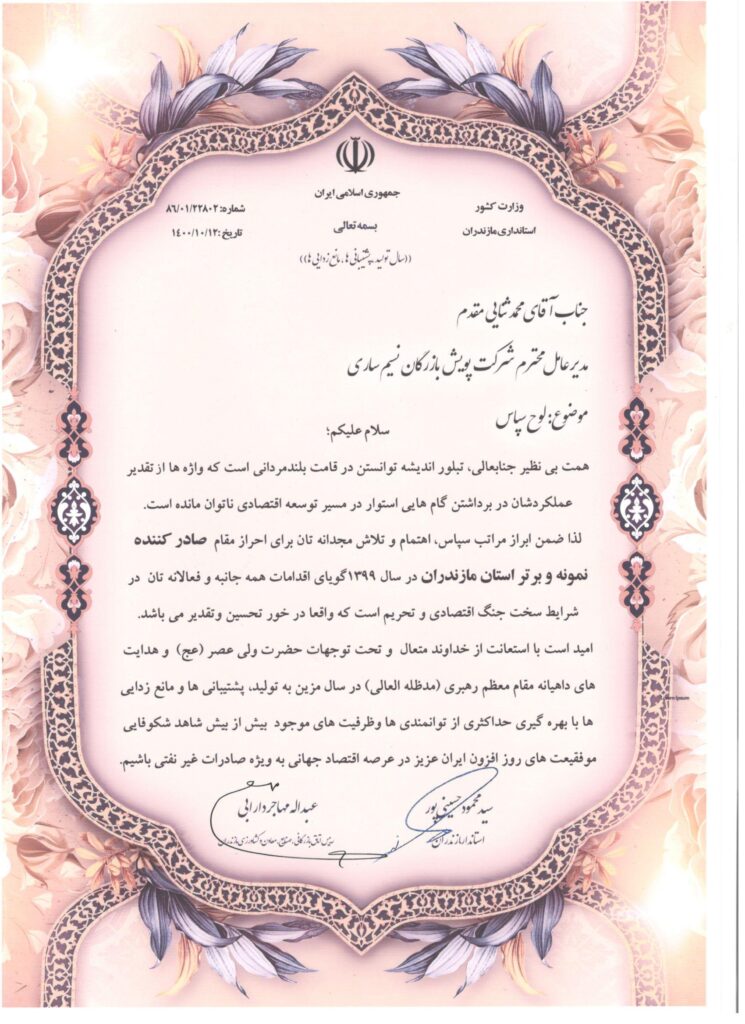 جمهوری اسلامی ایران
وزارت کشور
استانداری مازندران
بسمه تعالی
شماره: ۸۶/۰۱/۲۲۸۰۲
تاریخ: ۱۴۰۰/۱۰/۱۲
((سال تولید، پشتیبانی ها، مانع زدایی ها))
جناب آقای محمد ثنایی مقدم
مدیرعامل محترم شرکت پویش بازرگان نسیم ساری
موضوع: لوح سپاس
سلام علیکم؛
همت بی نظیر جنابعالی، تبلور اندیشه توانستن در قامت بلندمردانی است که واژه ها از تقدیر
عملکردشان در برداشتن گام هایی استوار در مسیر توسعه اقتصادی ناتوان مانده است.
لذا ضمن ابراز مراتب سپاس، اهتمام و تلاش مجدانه تان برای احراز مقام صادر کننده
نمونه و برتر استان مازندران در سال ۱۳۹۹گویای اقدامات همه جانبه و فعالانه تان در
شرایط سخت جنگ اقتصادی و تحریم است که واقعا در خور تحسین وتقدیر می باشد.
امید است با استعانت از خداوند متعال و تحت توجهات حضرت ولی عصر (عج) و هدایت
های داهیانه مقام معظم رهبری (مدظله العالی) در سال مزین به تولید، پشتیبانی ها و مانع زدایی
ها با بهره گیری حداکثری از توانمندی ها وظرفیت های موجود بیش از بیش شاهد شکوفایی
موفقیعت های روز افزون ایران عزیز در عرصه اقتصاد جهانی به ویژه صادرات غیر نفتی باشیم.
سید محمود حسینی پور
استاندار مازندران
عبداله مهاجر دارابی
رییس اتاق بازرگانی، صنایع، معادن و کشاورزی مازندران